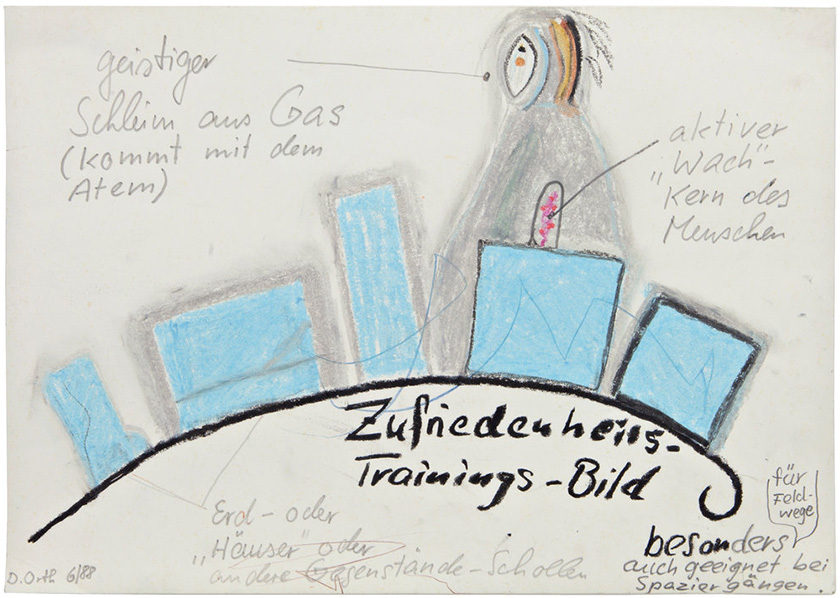 geistiger
Schleim aus Gas
(kommt mit dem
Atem)
aktiver
„Wach"-
Kern des
Menschen
Zufriedenheits-
Trainings-Bild
Erd- oder
„Häuser" oder
andere Gegenstände-Schollen
für
Feld-
wege
besonders
auch geeignet bei
Spaziergängen.
D.Orth 6/88